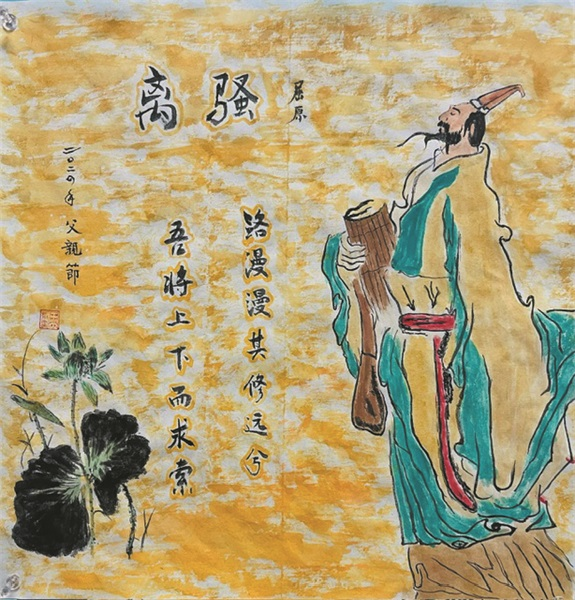 离骚
屈原
路漫漫其修远兮
吾将上下而求索
二〇二〇年 父親節